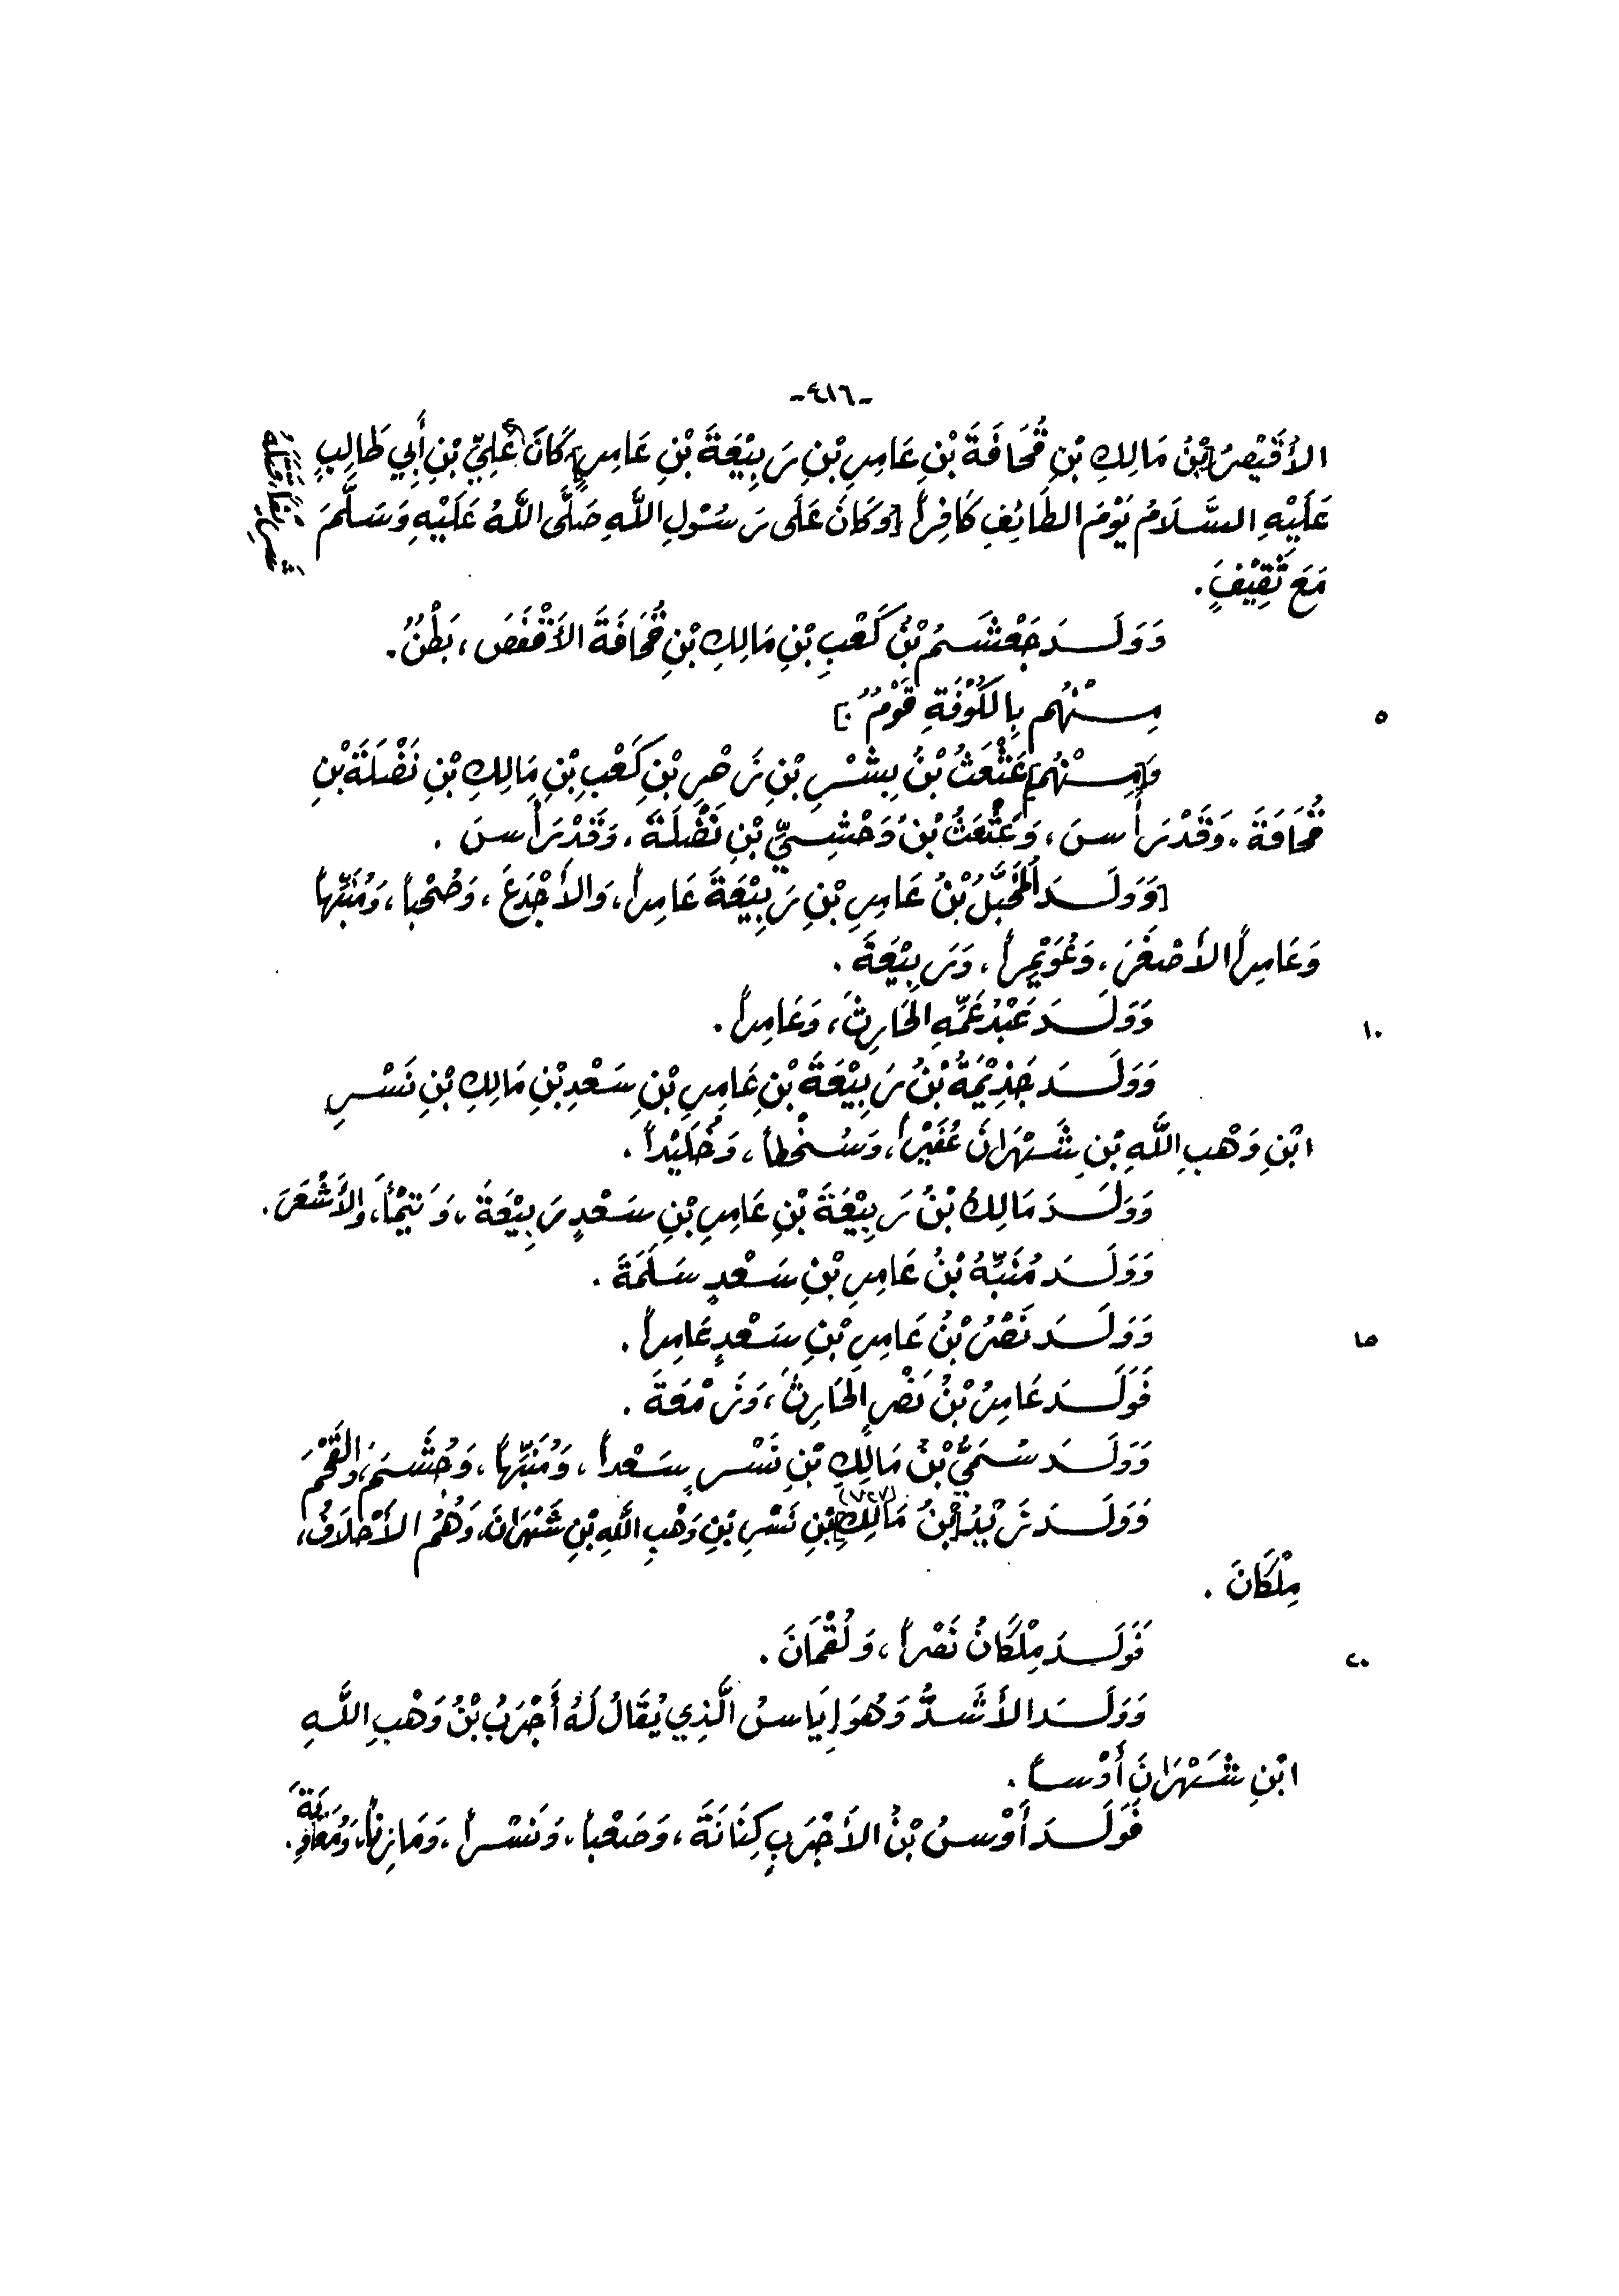 -٤١٦-
الأُقَيْصِرُ [بْنُ مَالِكِ بْنِ قُحَافَةَ بْنِ عَامِرِ بْنِ رَبِيْعَةَ بْنِ عَامِرٍ] كَانَ عَلِيّ بْنِ أَبِي طَالِبٍ
عَلَيْهِ السَّلَامُ يَوْمَ الطَّائِفِ كَافِراً [وَكَانَ عَلَى رَسُوْلِ اللَّهِ صَلَّى اللَّهُ عَلَيْهِ وَسَلَّمَ
مَعَ ثَقِيْفٍ.
وَوَلَدَ جَعْشَمُ بْنُ كَعْبِ بْنِ مَالِكِ بْنِ قُحَافَةَ الأَقْفَصَ، بَطْنٌ.
مِنْهُم بِالكُوْفَةِ قَوْمٌ.]
وَ[مِنْهُم] عَثْعَثُ بْنُ بِشْرِ بْنِ زَحْرِ بْنِ كَعْبِ بْنِ مَالِكِ بْنِ نَضْلَةَ بْنِ
قُحَافَةَ. وَقَدْ رَأَسَ، وَعَثْعَثُ بْنُ وَحْشِيِّ بْنِ نَضْلَةَ، وَقَدْ رَأَسَ.
[وَوَلَدَ المُخَبَّلُ بْنُ عَامِرِ بْنِ رَبِيْعَةَ عَامِراً، وَالأَجْدَعَ، وَصُحْباً، وَمُنَبِّهاً
وَعَامِراً الأَصْغَرَ، وَعُوَيْمِراً، وَرَبِيْعَةَ.
وَوَلَدَ عَبْدُ عَمِّهِ الحَارِثَ، وَعَامِراً.
وَوَلَدَ جَذِيْمَةُ بْنُ رَبِيْعَةَ بْنِ عَامِرِ بْنِ سَعْدِ بْنِ مَالِكِ بْنِ نَسْرِ
ابْنِ وَهْبِ اللَّهِ بْنِ شَهْرَانَ عُفَيْراً، وَسُخْطاً، وَخُلَيْداً.
وَوَلَدَ مَالِكُ بْنُ رَبِيْعَةَ بْنِ عَامِرِ بْنِ سَعْدٍ رَبِيْعَةَ، وَتَيْماً، وَالأَشْعَرَ.
وَوَلَدَ مُنَبِّهُ بْنُ عَامِرِ بْنِ سَعْدٍ سَلَمَةَ.
وَوَلَدَ نَصْرُ بْنُ عَامِرِ بْنِ سَعْدٍ عَامِراً.
فَوَلَدَ عَامِرُ بْنُ نَصْرٍ الحَارِثَ، وَزَمْعَةَ.
وَوَلَدَ سُمَيُّ بْنُ مَالِكِ بْنِ نَسْرٍ سَعْداً، وَمُنَبِّهاً، وَجُشَمَ، وَالقَحْمَ
وَوَلَدَ زَيْدُ [بْنُ مَالِكِ] (٧٢٧) بْنِ نَسْرِ بْنِ وَهْبِ اللَّهِ بْنِ شَهْرَانَ، وَهُمُ الأَحْلَافُ،
مِلْكَانَ.
فَوَلَدَ مِلْكَانُ نَصْراً، وَلُقْمَانَ.
وَوَلَدَ الأَشَدُّ وَهُوَ إِيَاسُ الَّذِي يُقَالُ لَهُ أَجْرَبُ بْنُ وَهْبِ اللَّهِ
ابْنِ شَهْرَانَ أَوْساً.
فَوَلَدَ أَوْسُ بْنُ الأَجْرَبِ كِنَانَةَ، وَصَعْباً، وَنَسْراً، وَمَازِناً، وَمُعَاوِيَةَ.
٥
١٠
١٥
٢٠